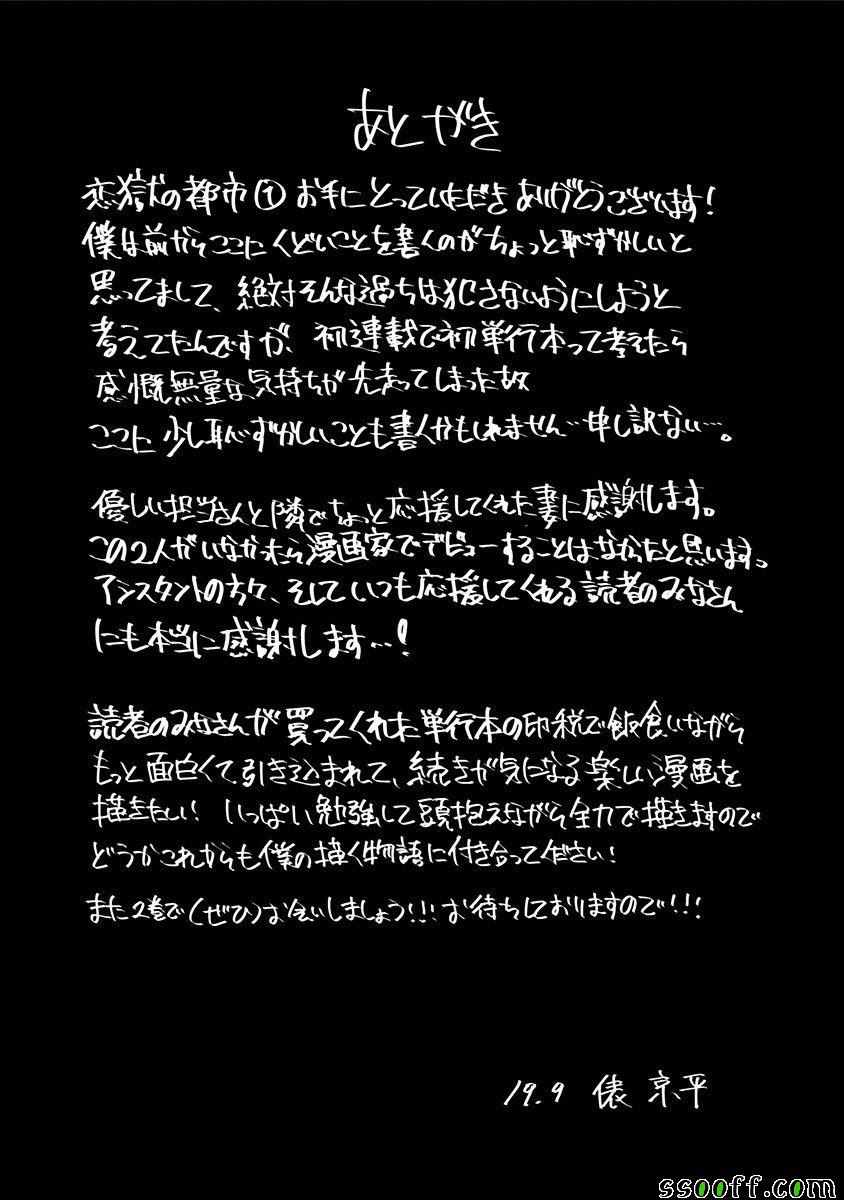 あとがき
恋獄の都市① お手にとっていただきありがとうございます!
僕は前からここにくどいことを書くのがちょっと恥ずかしいと
思ってまして、絶対そんな過ちは犯さないようにしようと
考えてたんですが、初連載で初単行本って考えたら
感慨無量な気持ちが先走ってしまった故
ここに少し恥ずかしいことも書くかもしれません…申し訳ない…。
優しい担当さんと隣でちょっと応援してくれた妻に感謝します。
この2人がいなかったら漫画家でデビューすることはなかったと思います。
アシスタントの方々、そしていつも応援してくれる読者のみなさん
にも本当に感謝します…!
読者のみなさんが買ってくれた単行本の印税で飯食いながら
もっと面白くて引き込まれて、続きが気になる楽しい漫画を
描きたい! いっぱい勉強して頭抱えながら全力で描きますので
どうかこれからも僕の描く物語に付き合ってください!
また2巻で(ぜひ)お会いしましょう!!!お待ちしておりますので!!!
19.9 俵 京平
ssooff.com